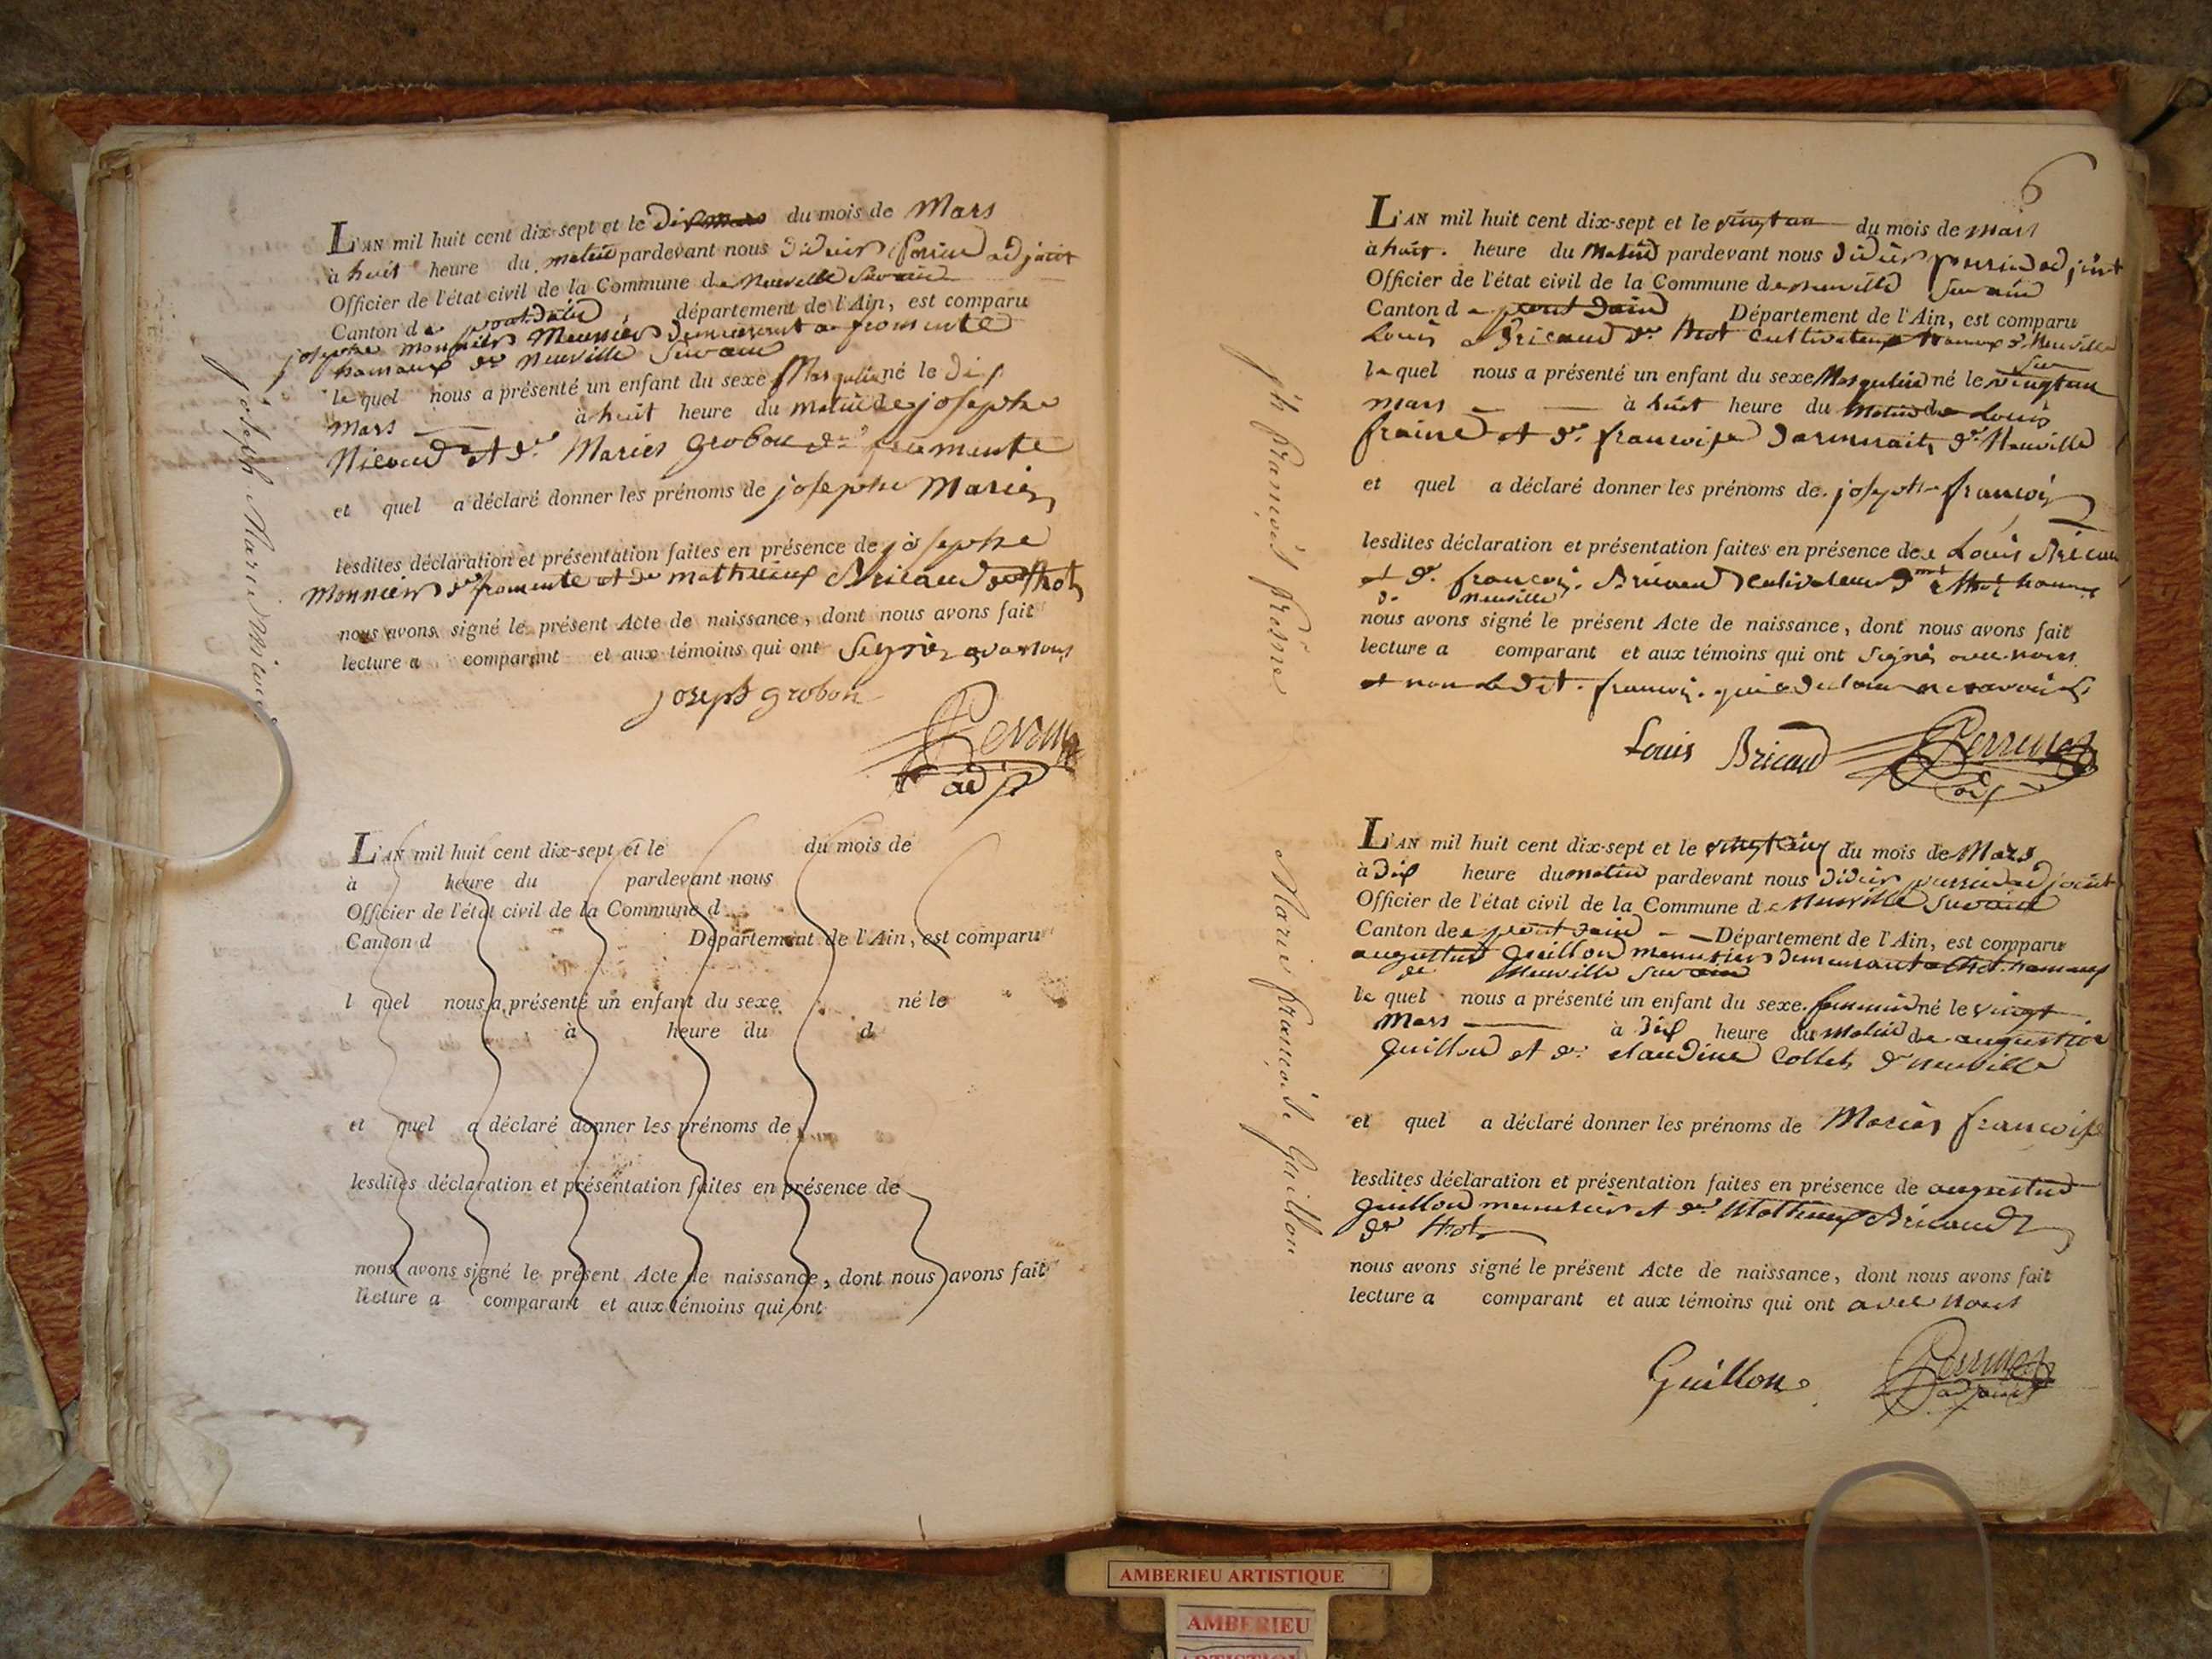 L'AN mil huit cent dix-sept et le dix du mois de Mars
à huit heure du matin pardevant nous Didier Perrin adjoint
Officier de l'état civil de la Commune de Neuville sur ain
Canton de pont dain département de l'Ain, est comparu
josephe Monnier Meunier demeurant a fromente
hamaux de Neuville sur ain
le quel nous a présenté un enfant du sexe Masqulin né le dix
mars à huit heure du matin de josephe
et de Marie Grobon de fromente
et quel a déclaré donner les prénoms de josephe Marie
lesdites déclaration et présentation faites en présence de josephe
Monnier de fromente et de mathieux Bricaud de thol
nous avons signé le présent Acte de naissance, dont nous avons fait
lecture a comparant et aux témoins qui ont
joseph grobon
adj
joseph Marie
L'AN mil huit cent dix-sept et le du mois de
à heure du pardevant nous
Officier de l'état civil de la Commune d
Canton d Département de l'Ain, est comparu
l quel nous a présenté un enfant du sexe né le
à heure du d
et quel a déclaré donner les prénoms de
lesdites déclaration et présentation faites en présence de
nous avons signé le présent Acte de naissance, dont nous avons fait
lecture a comparant et aux témoins qui ont
6
L'AN mil huit cent dix-sept et le vingt un du mois de mars
à huit heure du Matin pardevant nous didier perrin adjoint
Officier de l'état civil de la Commune de neuville sur ain
Canton de pont dain Département de l'Ain, est comparu
Louis Bricaud de thol cultivateur hamaux de Neuville
sur
le quel nous a présenté un enfant du sexe Masqulin né le vingt un
mars à huit heure du Matin de Louis
et de francoise de Neuville
et quel a déclaré donner les prénoms de josephe francois
lesdites déclaration et présentation faites en présence de Louis Bricau
et de francois Bricaud cultivateur
de neuville
nous avons signé le présent Acte de naissance, dont nous avons fait
lecture a comparant et aux témoins qui ont signés avec nous
et non ledit francois qui a declare ne savoir
Louis Bricaud Perrin
adj
jh francois
L'AN mil huit cent dix-sept et le vingt du mois de Mars
à dix heure du matin pardevant nous didier perrin adjoint
Officier de l'état civil de la Commune de Neuville sur ain
Canton de pont dain Département de l'Ain, est comparu
augustin Guillon menusier demeurant a thol hamaux
de Neuville sur ain
le quel nous a présenté un enfant du sexe feminin né le vingt
Mars à dix heure du matin de augustin
Guillon et de claudine Collet de neuville
et quel a déclaré donner les prénoms de Marie francoise
lesdites déclaration et présentation faites en présence de augustin
Guillon menusier et de Mathieux Bricaud
de thol
nous avons signé le présent Acte de naissance, dont nous avons fait
lecture a comparant et aux témoins qui ont avec nous
Guillon Perrin
adjoint
Marie francoise Guillon
AMBERIEU ARTISTIQUE
AMBERIEU
ARTISTIQUE